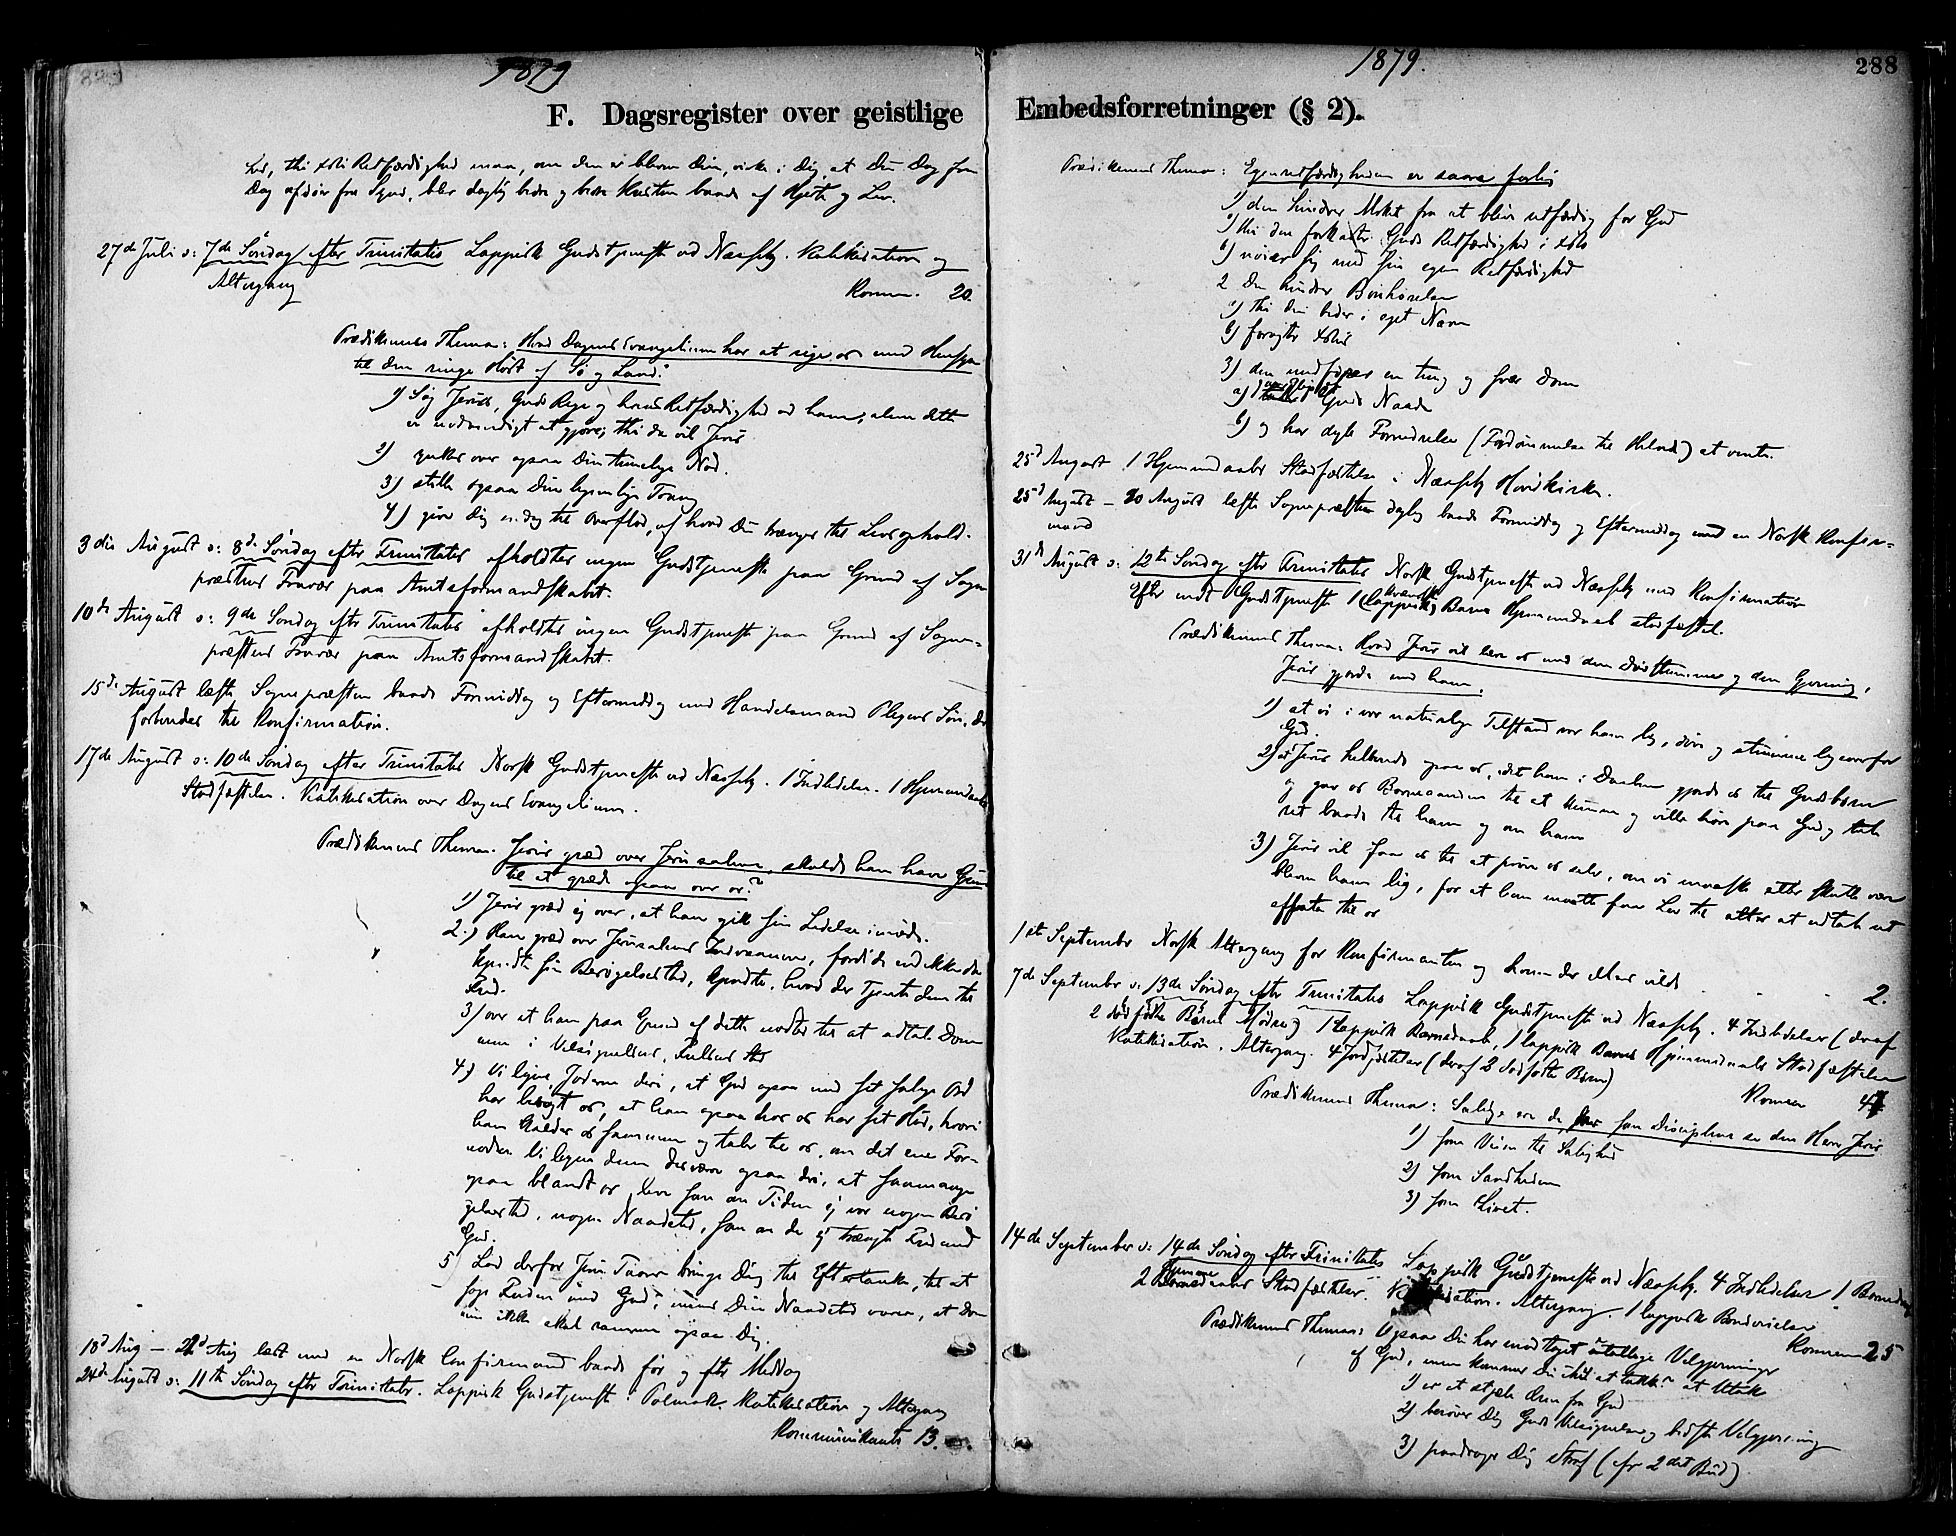 1879
F. Dagsregister over geistlige
Lid, thi Xsti Retfærdighed maa, om den er bleven Din, virke i Dig, at Du Dag for
Dag afdør fra Synd, blir daglig bedre og bedre Kristen baade af Hjerte og Lev.
27de Juli ɔ: 7de Søndag efter Trinitatis Lappisk Gudstjeneste ved Næsseby. Katekisation og
Altergang
Komm. 20.
Prædikenens Thema: Hvad Dagens Evangelium har at sige os med Hensyn
til den ringe Høst af Sø og Land?
1) Søg Jesus, Guds Rige og hans Retfærdighed ved ham, alene dette
er nødvendigt at gjøre; thi da vil Jesus
2) ynkes over ogsaa Din timelige Nød.
3) stille ogsaa Din legemlige Trang
4) give Dig endog til Overflod, af hvad Du trænger til Livsophold.
3die August ɔ: 8de Søndag efter Trinitatis afholdtes ingen Gudstjeneste paa Grund af Sogne
præstens Fravær paa Amtsformandskabet.
10de August ɔ: 9de Søndag efter Trinitatis afholdtes ingen Gudstjeneste paa Grund af Sogne-
præstens Fravær paa Amtsformandskabet.
15de August læste Sognepræsten baade Formiddag og Eftermiddag med Handelsmand Plejens Søn, der
forberedes til Konfirmation.
17de August ɔ: 10de Søndag efter Trinitatis Norsk Gudstjeneste ved Næsseby. 1 Indledelse. 1 Hjemmedaabs
Stadfæstelse. Katekisation over Dagens Evangelium.
Prædikenens Thema. Jesus græd over Jerusalem, skulde han have Grund
til at græde ogsaa over os?
1) Jesus græd ej over, at han gik sin Lidelse imøde.
2.) Han græd over Jerusalems Indvaanere, fordi de end ikke da
kjendte sin Besøgelsestid, kjendte, hvad der tjente dem til
Fred.
3) over at han paa Grund af dette nødtes til at udtale Dommen
4) Vi ligne Jøderne deri, at Gud ogsaa med sit salige Ord
har besøgt os, at han ogsaa hos os har sit Hus, hvori
han kalder os sammen og taler til os, om det ene For-
nødne. Vi ligne dem desværre ogsaa deri, at saamange
ogsaa blandt os leve som om Tiden ej var nogen Besø
gelsestid, nogen Naadetid, som om de ej trængte Fred med
Gud.
5) Lad derfor Jesu Taarer bringe Dig til Eftertanke, til at
søge Freden med Gud, mens Din Naadetid varer, at Dom
men ikke skal ramme ogsaa Dig.
18de Aug – 22de Aug læst med en Norsk Confirmand baade før og efter Middag
24de August ɔ: 11te Søndag efter Trinitatis. Lappisk Gudstjeneste i Polmak. Katekisation og Altergang
Kommunikanter 13.
1879.
288
Embedsforretninger (§ 2).
Prædikenens Thema: Egenretfærdigheden er saare farlig
1) den hindrer Mest fra at blive retfærdig for Gud
a) thi den forkaster Guds Retfærdighed i Xsto
b) nøier sig med sin egen Retfærdighed
2 Den hindrer Bønhørelse
a) thi den beder i eget Navn
b) foragter Xstus
3) den medfører en tung og svær Dom
a) Guds Naade
b) og har dybe Fornedrelse (Fordømmelse til Helvede) at vente.
25de August 1 Hjemmedaabs Stadfæstelse i Næsseby Hovedkirke.
25de August – 30 August læste Sognepræsten daglig baade Formiddag og Eftermiddag med en Norsk Konfir-
mand
31te August ɔ: 12te Søndag efter Trinitatis Norsk Gudstjeneste ved Næsseby med Konfirmation
Efter endt Gudstjeneste 1 (lappisk) kvænsk Barns Hjemmedaab stadfæstet.
Prædikenens Thema: Hvad Jesus vil lære os med den Døvstumme og den Gjerning,
Jesus gjorde med ham.
1) at vi i vor naturlige Tilstand var ham lig, døve og stumme ligeoverfor
Gud.
2) at Jesus helbrede ogsaa os, idet han i Daaben gjorde os til Gudsbørn
og gav os Barneaanden til at kunne og ville høre paa Gud og tale
ret baade til ham og om ham
3) Jesus vil faa os til at prøve os selv, om vi maaske atter skulle være
bleven ham lig, for at han maatte faa Lov til atter at udtale sit
effata til os
1ste September Norsk Altergang for Konfirmanten og hvem der ellers vilde . . . 2.
7de September ɔ: 13de Søndag efter Trinitatis Lappisk Gudstjeneste ved Næsseby. 4 Indledelser (deraf
2 dødfødte Børns Mødre) 1 lappisk Barnedaab, 1 lappisk Barns Hjemmedaabs Stadfæstelse
Katekisation. Altergang. 4 Jordfæstelser (deraf 2 dødfødte Børn)
Komm 47
Prædikenens Thema: Salige ere de, som Disciplene se den Herre Jesus
1) som Veien til Salighed
2) som Sandheden
3) som Livet.
14de September ɔ: 14de Søndag efter Trinitatis Lappisk Gudstjeneste ved Næsseby. 4 Indledelser 1 Barnedaab
2 Hjemmedaabs Stadfæstelser. Katekisation. Altergang. 1 lappisk Brudevielse
Kommun 25
Prædikenens Thema: Ogsaa Du har modtaget utallige Velgjerninger
af Gud, men kommer Du ihu at takke?
1) er at stjæle Æren fra Gud
2) berøver Dig Guds Velsignelse og bedste Velgjerning
3) paadrager Dig Straf (cfr 2det Bud)